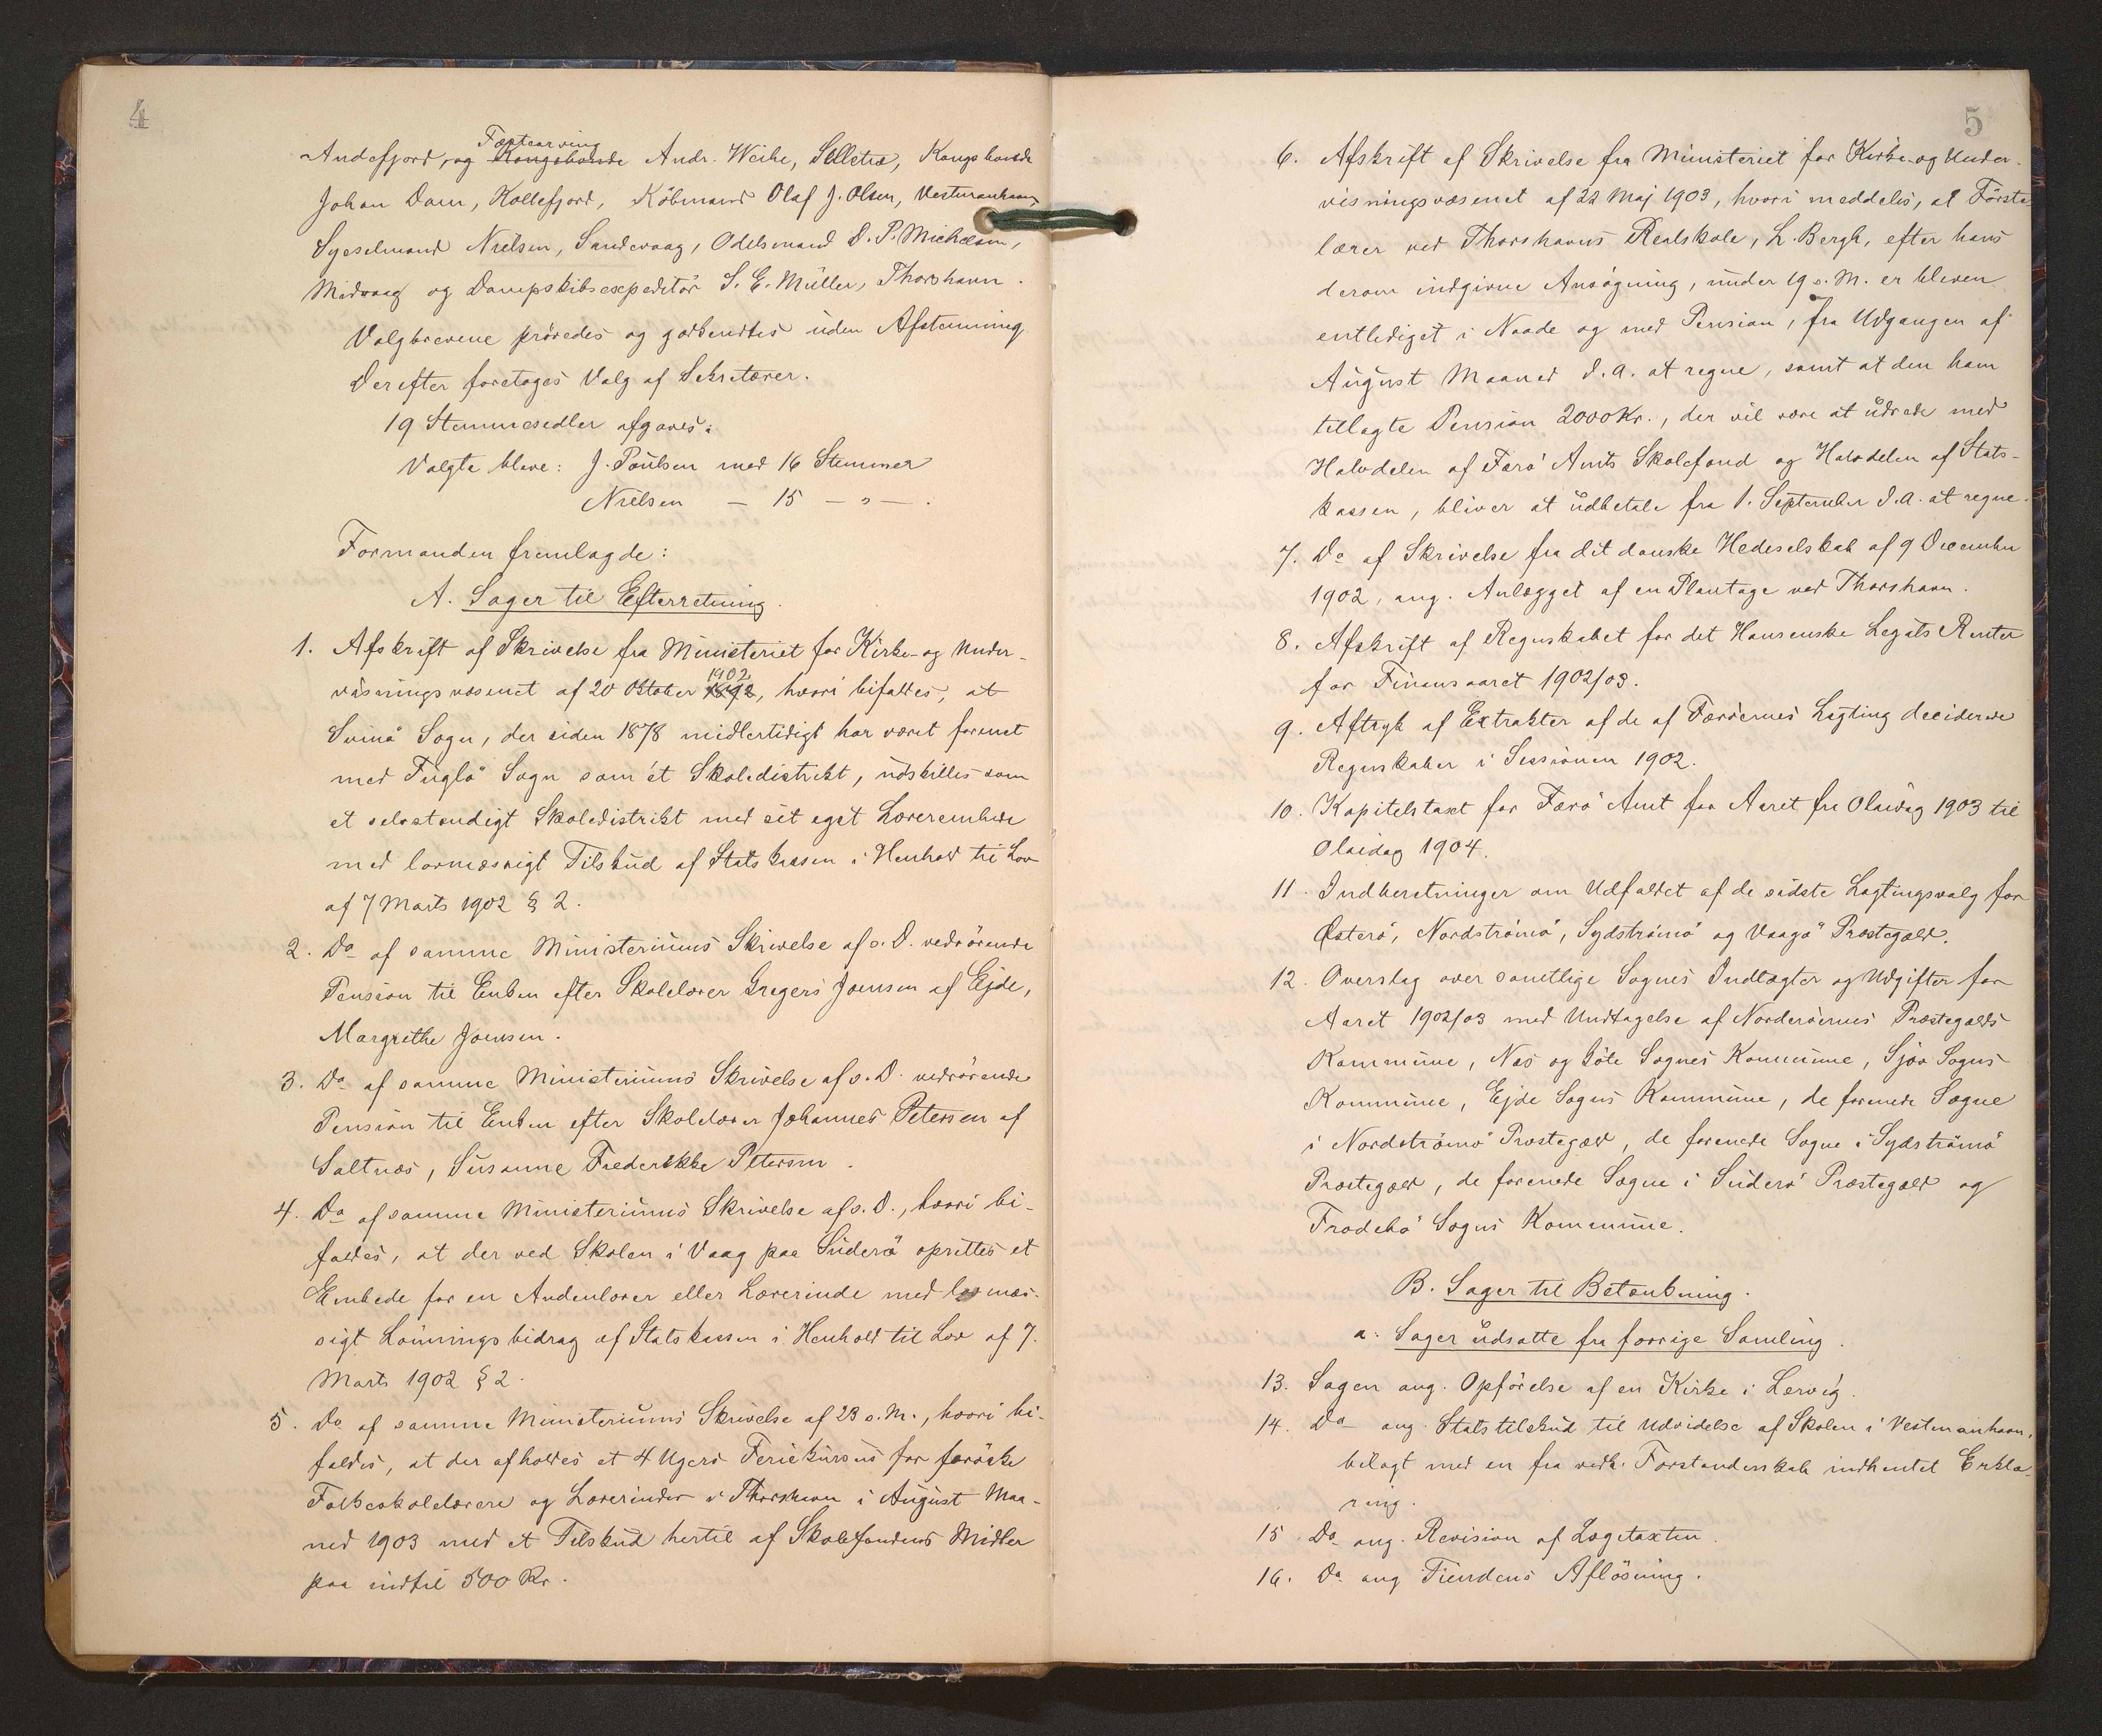 4
Andefjord, og Fæstearving Kongsbonde Andr. Weihe, Selletræ, Kongsbonde
Johan Dam, Kollefjord, Köbmand Olaf J. Olsen, Vestmanhavn
Sysselmand Nielsen, Sandevaag, Odelsmand D. P. Michelsen,
Midvaag og Dampskibsexpeditör S. E. Müller, Thorshavn.
Valgbrevene prövedes og godkendtes uden Afstemning.
Derefter foretoges Valg af Sekretærer.
19 Stemmesedler afgaves:
Valgte bleve: J. Poulsen med 16 Stemmer
Nielsen — 15 — " — .
Formanden fremlagde:
A. Sager til Efterretning.
1. Afskrift af Skrivelse fra Ministeriet for Kirke- og Under-
visningsvæsenet af 20 Oktober 1892 1902, hvori bifaldes, at
Svinö Sogn, der siden 1878 midlertidigt har været forenet
med Fuglö Sogn som ét Skoledistrikt, udskilles som
et selvstændigt Skoledistrikt med sit eget Lærerembede
med lovmæssigt Tilskud af Statskassen i Henhold til Lov
af 7 Marts 1902 § 2.
2. Do af samme Ministeriums Skrivelse af s. D. vedrörende
Pension til Enken efter Skolelærer Gregers Joensen af Ejde,
Margrethe Joensen.
3. Do af samme Ministeriums Skrivelse af s. D. vedrörende
Pension til Enken efter Skolelærer Johannes Petersen af
Saltnæs, Susanne Frederikke Petersen.
4. Do af samme Ministeriums Skrivelse af s. D., hvori bi-
faldes, at der ved Skolen i Vaag paa Suderö oprettes et
Embede for en Andenlærer eller Lærerinde med lovmæs-
sigt Lönningsbidrag af Statskassen i Henhold til Lov af 7.
Marts 1902 § 2.
5. Do af samme Ministeriums Skrivelse af 23 s. M., hvori bi-
faldes, at der afholdes et 4 Ugers Feriekursus for færöske
Folkeskolelærere og Lærerinder i Thorshavn i August Maa-
ned 1903 med et Tilskud hertil af Skolefondens Midler
paa indtil 500 Kr.
5
6. Afskrift af Skrivelse fra Ministeriet for Kirke- og Under-
visningsvæsenet af 22 Maj 1903, hvori meddeles, at Förste-
lærer ved Thorshavns Realskole, L. Bergh, efter hans
derom indgivne Ansögning, under 19 s. M. er bleven
entlediget i Naade og med Pension, fra Udgangen af
August Maaned d. A. at regne, samt at den ham
tillagte Pension 2000 Kr., der vil være at udrede med
Halvdelen af Færö Amts Skolefond og Halvdelen af Stats-
kassen, bliver at udbetale fra 1. September d. A. at regne.
7. Do af Skrivelse fra det danske Hedeselskab af 9 December
1902, ang. Anlægget af en Plantage ved Thorshavn.
8. Afskrift af Regnskabet for det Hansenske Legats Renter
for Finansaaret 1902/03.
9. Aftryk af Extrakter af de af Færöernes Lagting deciderede
Regnskaber i Sessionen 1902.
10. Kapitelstaxt for Færö Amt for Aaret fra Olaidag 1903 til
Olaidag 1904.
11. Indberetninger om Udfaldet af de sidste Lagtingsvalg for
Österö, Nordströmö, Sydströmö og Vaagö Præstegæld.
12. Overslag over samtlige Sognes Indtægter og Udgifter for
Aaret 1902/03 med Undtagelse af Norderöernes Præstegælds
Kommune, Næs og Göte Sognes Kommune, Sjov Sogns
Kommune, Ejde Sogns Kommune, de forenede Sogne
i Nordströmö Præstegæld, de forenede Sogne i Sydströmö
Præstegæld, de forenede Sogne i Suderö Præstegæld og
Frodebö Sogns Kommune.
B. Sager til Betænkning.
a. Sager udsatte fra forrige Samling.
13. Sagen ang. Opförelse af en Kirke i Lervig.
14. Do ang. Statstilskud til Udvidelse af Skolen i Vestmanhavn,
bilagt med en fra vedk. Forstanderskab indhentet Erklæ-
ring.
15. Do ang. Revision af Lægetaxten.
16. Do ang Tiendens Aflösning.